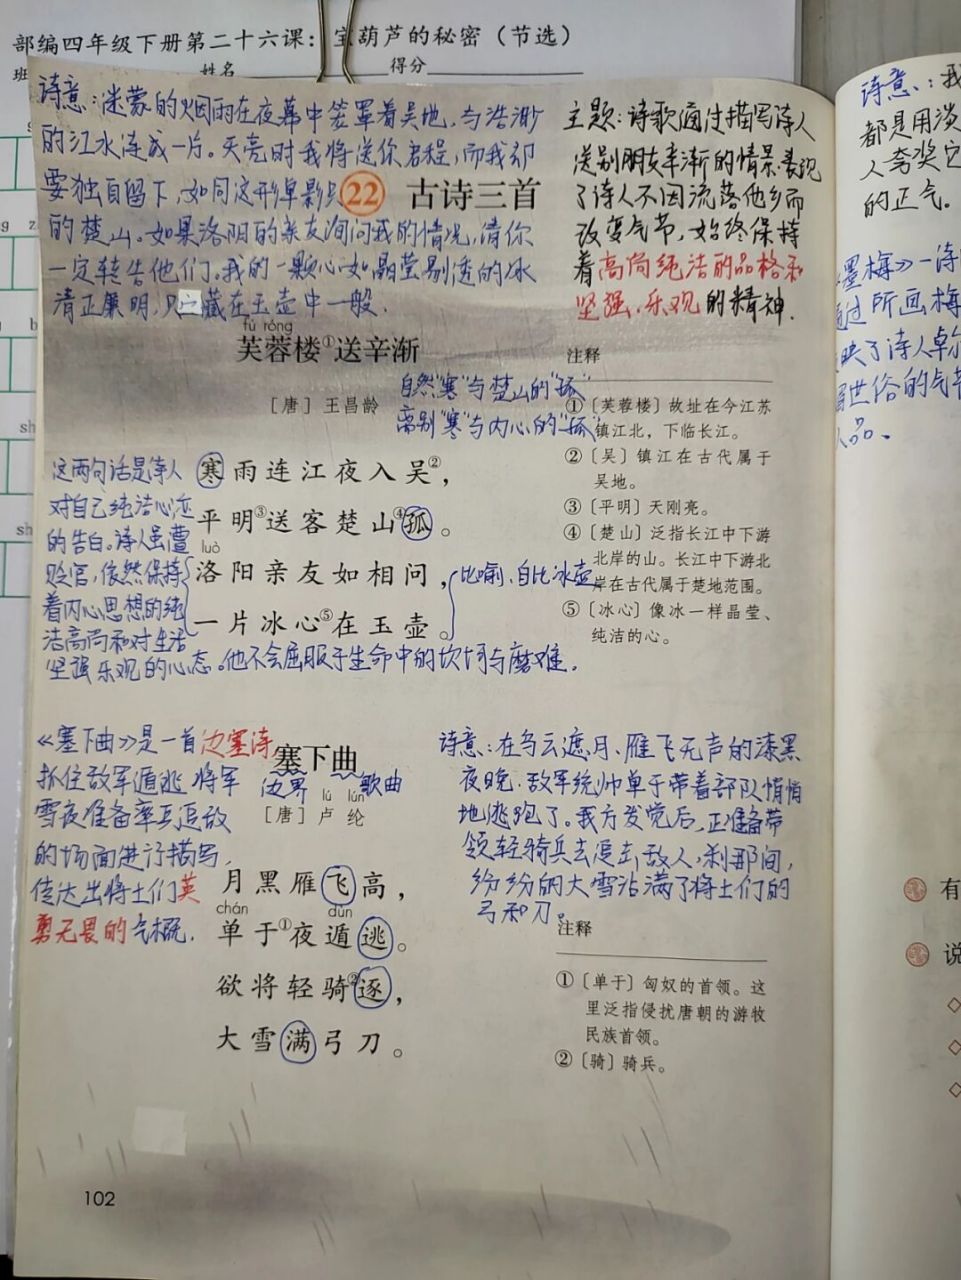 部编四年级下册第二十六课：宝葫芦的秘密（节选）
班
姓名
得分
诗意：迷蒙的烟雨在夜幕中笼罩着吴地，与浩渺
的江水连成一片。天亮时我将送你启程，而我却
要独自留下，如同这形单影只
的楚山。如果洛阳的亲友询问我的情况，请你
一定转告他们。我的一颗心如晶莹剔透的冰
清正廉明，只藏在玉壶中一般．
22 古诗三首
主题：诗歌通过描写诗人
送别朋友辛渐的情景．表现
了诗人不因流落他乡而
改变气节，始终保持
着高尚纯洁的品格和
坚强、乐观的精神．
fú róng
芙蓉楼①送辛渐
[唐] 王昌龄
自然"寒"与楚山的"孤"
离别"寒"与内心的"孤"
寒雨连江夜入吴②，
平明③送客楚山④孤。
luò
洛阳亲友如相问，
一片冰心⑤在玉壶。
比喻，自比冰壶
这两句话是诗人
对自己纯洁心迹
的告白。诗人虽遭
贬官，依然保持
着内心思想的纯
洁高尚和对生活
坚强乐观的心态。他不会屈服于生命中的坎坷与磨难．
注释
①〔芙蓉楼〕故址在今江苏
镇江北，下临长江。
②〔吴〕镇江在古代属于
吴地。
③〔平明〕天刚亮。
④〔楚山〕泛指长江中下游
北岸的山。长江中下游北
岸在古代属于楚地范围。
⑤〔冰心〕像冰一样晶莹、
纯洁的心。
《塞下曲》是一首边塞诗
抓住敌军遁逃 将军
雪夜准备率兵追敌
的场面进行描写，
传达出将士们英
勇无畏的气概．
塞下曲
边界
歌曲
lú lún
[唐] 卢纶
月黑雁飞高，
chán dùn
单于①夜遁逃。
欲将轻骑②逐，
大雪满弓刀。
诗意：在乌云遮月、雁飞无声的漆黑
夜晚．敌军统帅单于带着部队悄悄
地逃跑了。我方发觉后，正准备带
领轻骑兵去追击敌人，刹那间，
纷纷的大雪沾满了将士们的
弓和刀。
注释
①〔单于〕匈奴的首领。这
里泛指侵扰唐朝的游牧
民族首领。
②〔骑〕骑兵。
102
诗意：我
都是用淡
人夸奖它
的正气．
《墨梅》一诗
过所画梅
映了诗人
世俗的气节
人品．
有
说